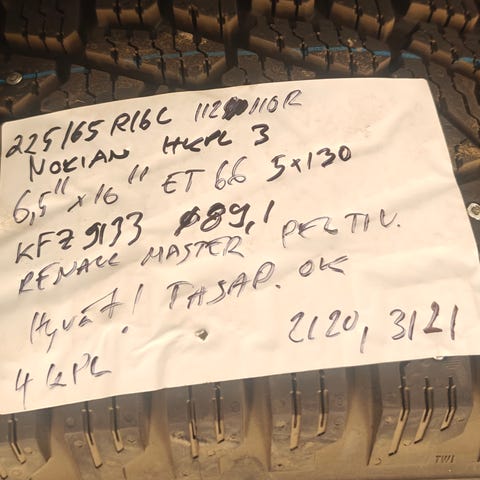 225/65 R16C 112/110R
NOKIAN HKPL 3
6,5" x 16" ET 66 5x130
KFZ 9133 Ø89,1
RENAULT MASTER PELTIV.
Hyvät! TASAP. OK
2120, 3121
4 KPL
TWI